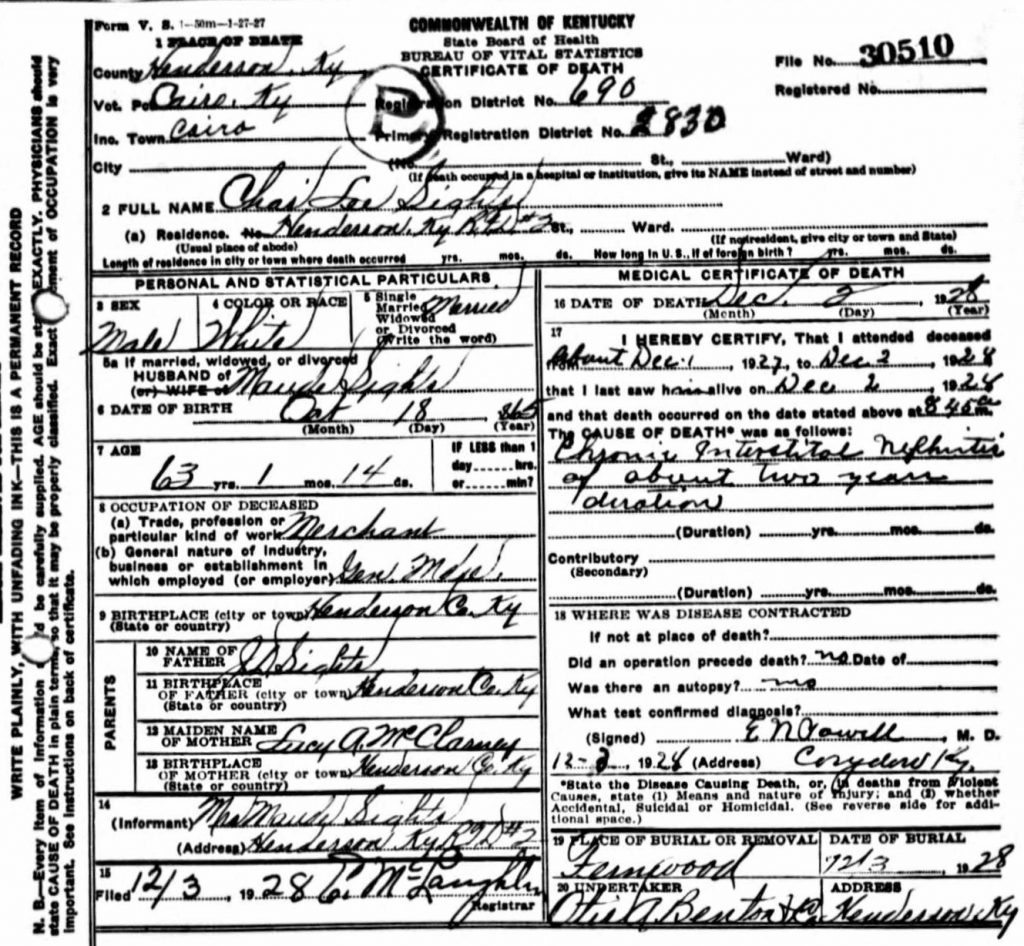 Form V. S. 1—50m—1-27-27
COMMONWEALTH OF KENTUCKY
State Board of Health
BUREAU OF VITAL STATISTICS
CERTIFICATE OF DEATH
File No. 30510
Registered No.
1 PLACE OF DEATH
County Henderson, Ky
Vot. Pct Cairo, Ky
Registration District No. 690
Inc. Town Cairo
Primary Registration District No. 2830
City (No. St., Ward)
(If death occurred in a hospital or institution, give its NAME instead of street and number)
P
2 FULL NAME Chas Lee Sights
(a) Residence. No. Henderson, Ky R.F.D. #2 St., Ward.
(Usual place of abode) (If nonresident, give city or town and State)
Length of residence in city or town where death occurred yrs. mos. ds. How long in U.S., if of foreign birth? yrs. mos. ds.
PERSONAL AND STATISTICAL PARTICULARS
3 SEX Male
4 COLOR OR RACE White
5 Single Married Widowed or Divorced (Write the word) Married
5a If married, widowed, or divorced
HUSBAND of
(or) WIFE of Maude Sights
6 DATE OF BIRTH Oct 18 1865
(Month) (Day) (Year)
7 AGE
63 yrs. 1 mos. 14 ds.
IF LESS than 1
day hrs.
or min?
8 OCCUPATION OF DECEASED
(a) Trade, profession or
particular kind of work Merchant
(b) General nature of industry,
business or establishment in
which employed (or employer) Gen. Mdse.
9 BIRTHPLACE (city or town) Henderson Co. Ky
(State or country)
PARENTS
10 NAME OF
FATHER Sights
11 BIRTHPLACE
OF FATHER (city or town) Henderson Co. Ky
(State or country)
12 MAIDEN NAME
OF MOTHER Lucy A. McClarney
13 BIRTHPLACE
OF MOTHER (city or town) Henderson Co. Ky
(State or country)
14
(Informant) Mrs Maude Sights
(Address) Henderson Ky RFD #2
15
Filed 12/3, 1928 McLaughlin
Registrar
MEDICAL CERTIFICATE OF DEATH
16 DATE OF DEATH Dec. 2, 1928
(Month) (Day) (Year)
17 I HEREBY CERTIFY, That I attended deceased
from About Dec. 1, 1927, to Dec 2, 1928
that I last saw him alive on Dec 2, 1928
and that death occurred on the date stated above at 845a m.
The CAUSE OF DEATH* was as follows:
Chronic Interstital Nephritis
of about two years
duration
(Duration) yrs. mos. ds.
Contributory
(Secondary)
(Duration) yrs. mos. ds.
18 WHERE WAS DISEASE CONTRACTED
If not at place of death?
Did an operation precede death? no Date of
Was there an autopsy? no
What test confirmed diagnosis?
(Signed) E N Powell, M. D.
12-2, 1928 (Address) Corydon Ky.
*State the Disease Causing Death, or, in deaths from Violent
Causes, state (1) Means and nature of Injury; and (2) whether
Accidental, Suicidal or Homicidal. (See reverse side for addi-
tional space.)
19 PLACE OF BURIAL OR REMOVAL
Fernwood
DATE OF BURIAL
12/3 1928
20 UNDERTAKER
Otis A. Benton & Co
ADDRESS
Henderson, Ky
WRITE PLAINLY, WITH UNFADING INK—THIS IS A PERMANENT RECORD
N. B.—Every item of information should be carefully supplied. AGE should be stated EXACTLY. PHYSICIANS should
state CAUSE OF DEATH in plain terms, so that it may be properly classified. Exact statement of OCCUPATION is very
important. See instructions on back of certificate.